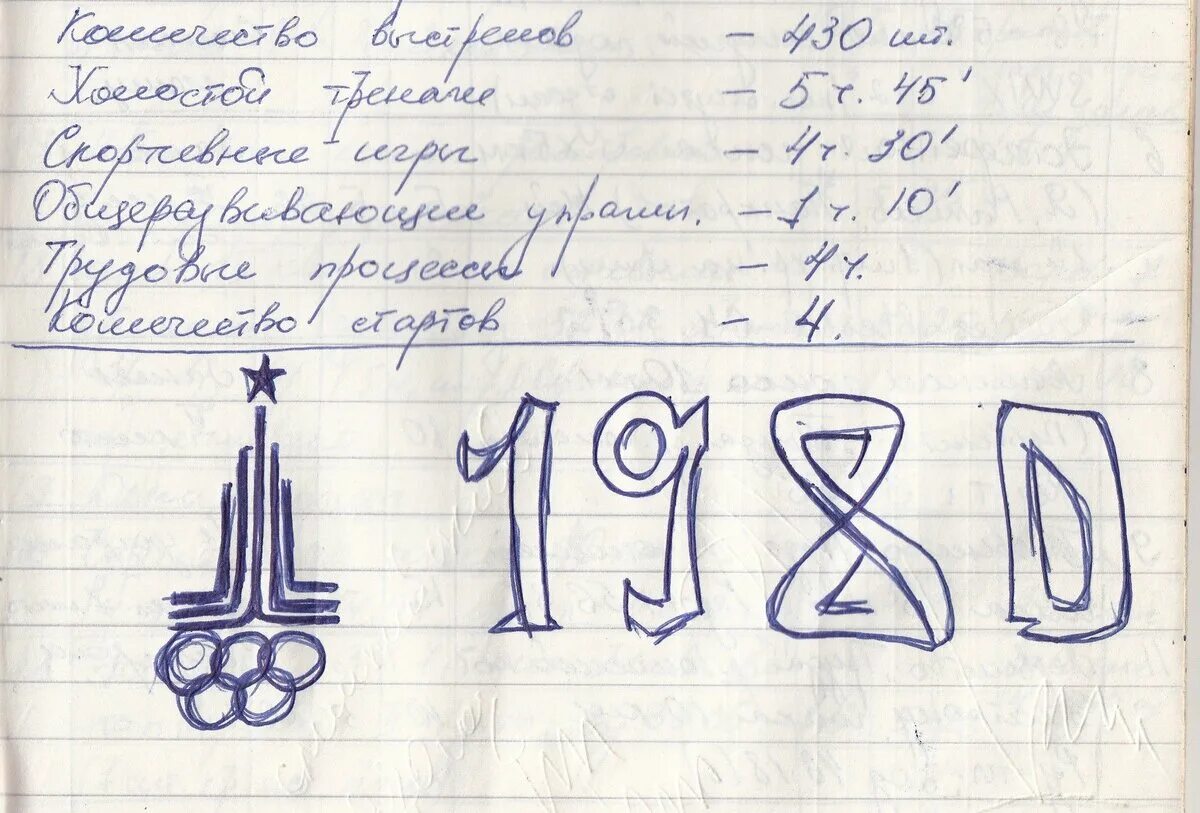 Количество выстрелов – 430 шт.
Холостой тренаж – 5 ч. 45'
Спортивные игры – 4 ч 30'
Общеразвивающие упражн. – 1 ч. 10'
Трудовые процессы – 4 ч.
Количество стартов – 4.
1980